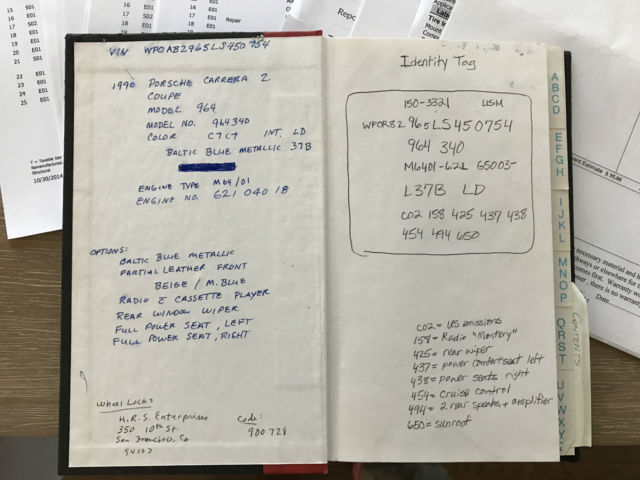 VIN WPOAB2965LS450754
1990 PORSCHE CARRERA 2
COUPE
MODEL 964
MODEL NO. 964340
COLOR C7C7 INT. LD
BALTIC BLUE METALLIC 37B
ENGINE TYPE M64/01
ENGINE NO. 621 040 18
OPTIONS:
BALTIC BLUE METALLIC
PARTIAL LEATHER FRONT
BEIGE / M. BLUE
RADIO & CASSETTE PLAYER
REAR WINDOW WIPER
FULL POWER SEAT, LEFT
FULL POWER SEAT, RIGHT
Wheel Locks
H.R.S. Enterprises
350 10th St
San Francisco, Ca
94103
Code:
900728
Identity Tag
150-3321 USM
WPORB2 965LS450754
964 340
M6401-621 65003-
L37B LD
C02 158 425 437 438
454 494 650
C02= US emissions
158= Radio "Montery"
425= rear wiper
437= power comfort seat left
438= power seats right
454= Cruise control
494= 2 rear speaks + amplifier
650= sunroof
A
B
C
D
E
F
G
H
I
J
K
L
M
N
O
P
Q
R
S
T
U
V
W
X
Y
15 S01
16 S02
17
18
20 E01
21 E01
22 E01
23 E01
24 E01
25 E01
Repair
10/30/2014
necessary material and
Date